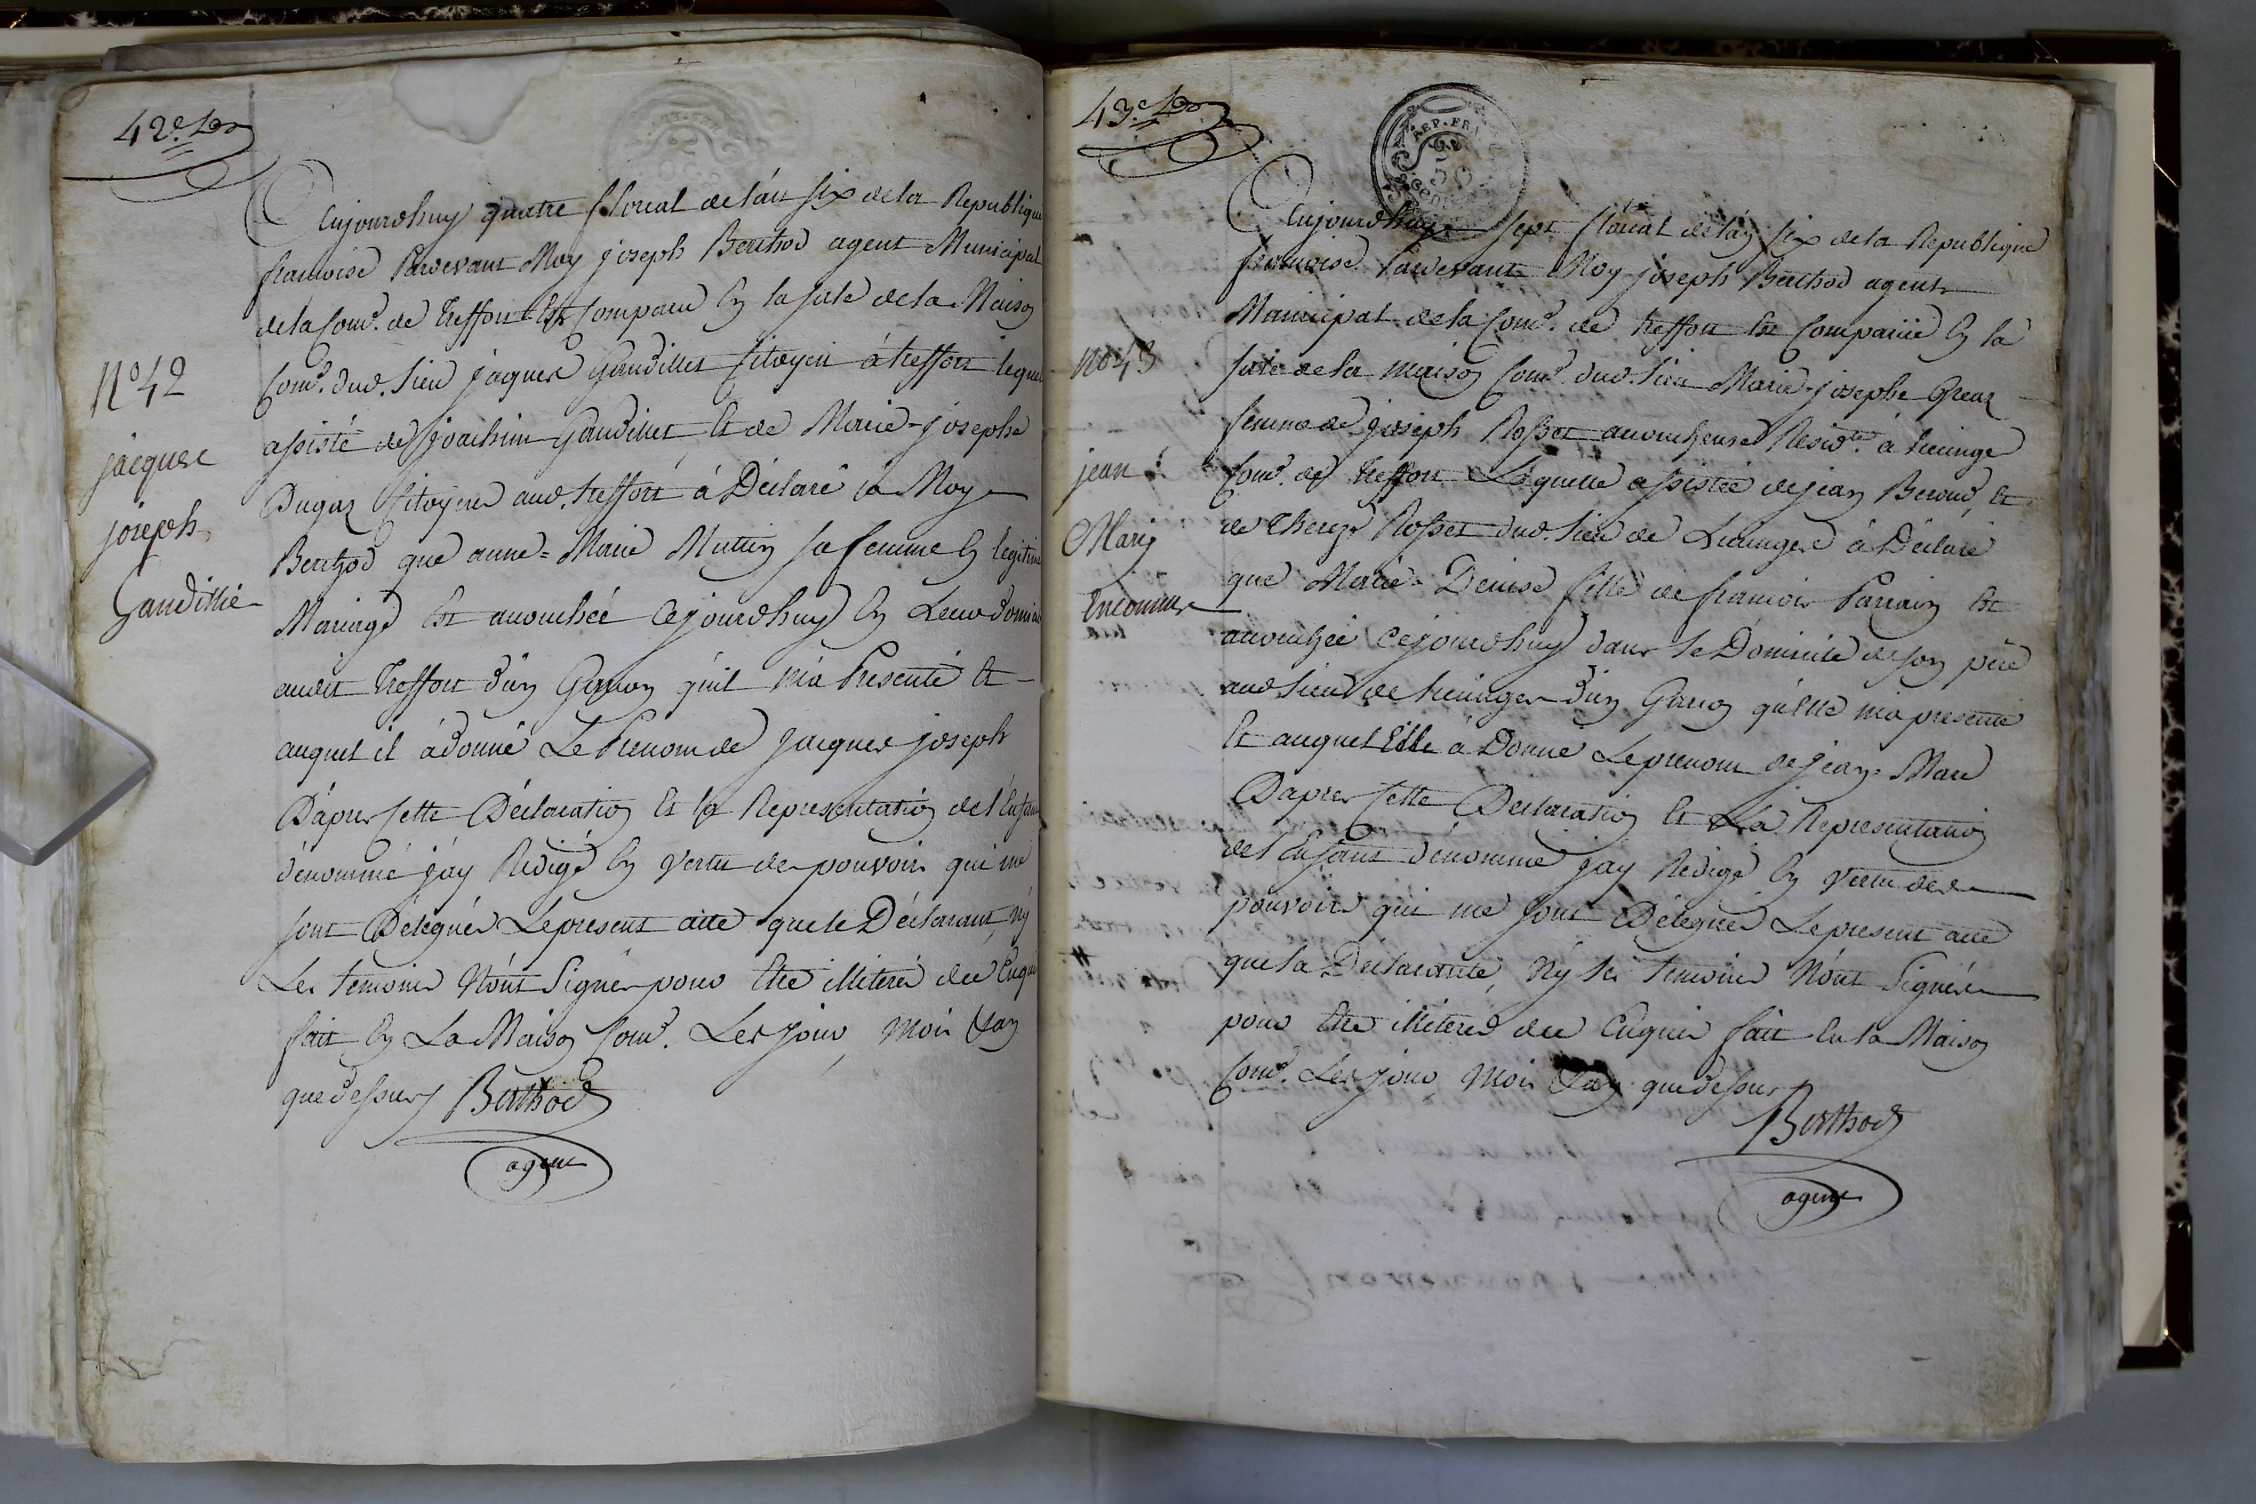 42e.
Aujourdhuy quatre floreal de l'an six de la Republique
francoise Pardevant Moy joseph Berthod agent Municipal
de la Com.e de Treffort Est Comparu En la sale de la Maison
Com.e dud. Lieu jaques Gaudillet Citoyen á treffort lequel
assisté de joachim Gaudillet Et de Marie-josephe
Dugaz Citoyens aud. treffort á Déclaré á Moy
Berthod que anne=Marie Muttin sa femme En legitime
Mariage Est accouchée Cejourdhuy En Leur domicile
audit Treffort d'un Garçon qu'il m'a Presenté Et
auquel il á donné Le Prenom de Jacques joseph
D'apres Cette Déclaration Et la Representation de l'Enfant
dénommé j'ay Redigé En vertu des pouvoirs qui me
sont Délegués Le present acte que le Déclarant, ny
Les temoins N'ont Signés pour Etre illiterés de ce Enquis
fait En La Maison Com.e Les jour, Mois & an
que dessus Berthod
agent
N°42
jacques
joseph
Gaudillié
43e.
REP. FRA
50
Aujourdhuy sept floreal de l'an six de la Republique
francoise Pardevant Moy joseph Berthod agent
Municipal de la Com.e de treffort Est Comparüe En la
sale de la maison Com.e dud. Lieu Marie-josephe
femme de joseph Rosset accoucheuse Resid.te á
Com.e de Treffort Laquelle assistée de jean Beroud, Et
de Thereze Rosset dud. Lieu de á Déclaré
que Marie=Denise fille de francois Parrain Est
accouchée Cejourdhuy dans le Domicile de son pere
aud Lieu de d'un Garçon qu'elle m'a presenté
Et auquel Elle á Donné Le prenom de jean=Marie
D'apres Cette Declaration Et La Representation
de l'Enfant dénommé j'ay Redigé En vertu des
pouvoirs qui me sont Délegués Le present acte
que la Déclarante, ny les temoins N'ont Signés
pour Etre illiterés de ce Enquis fait En la Maison
Com.e Les jour, Mois & an que dessus
Berthod
agent
N°43
jean
Marie
Inconnu